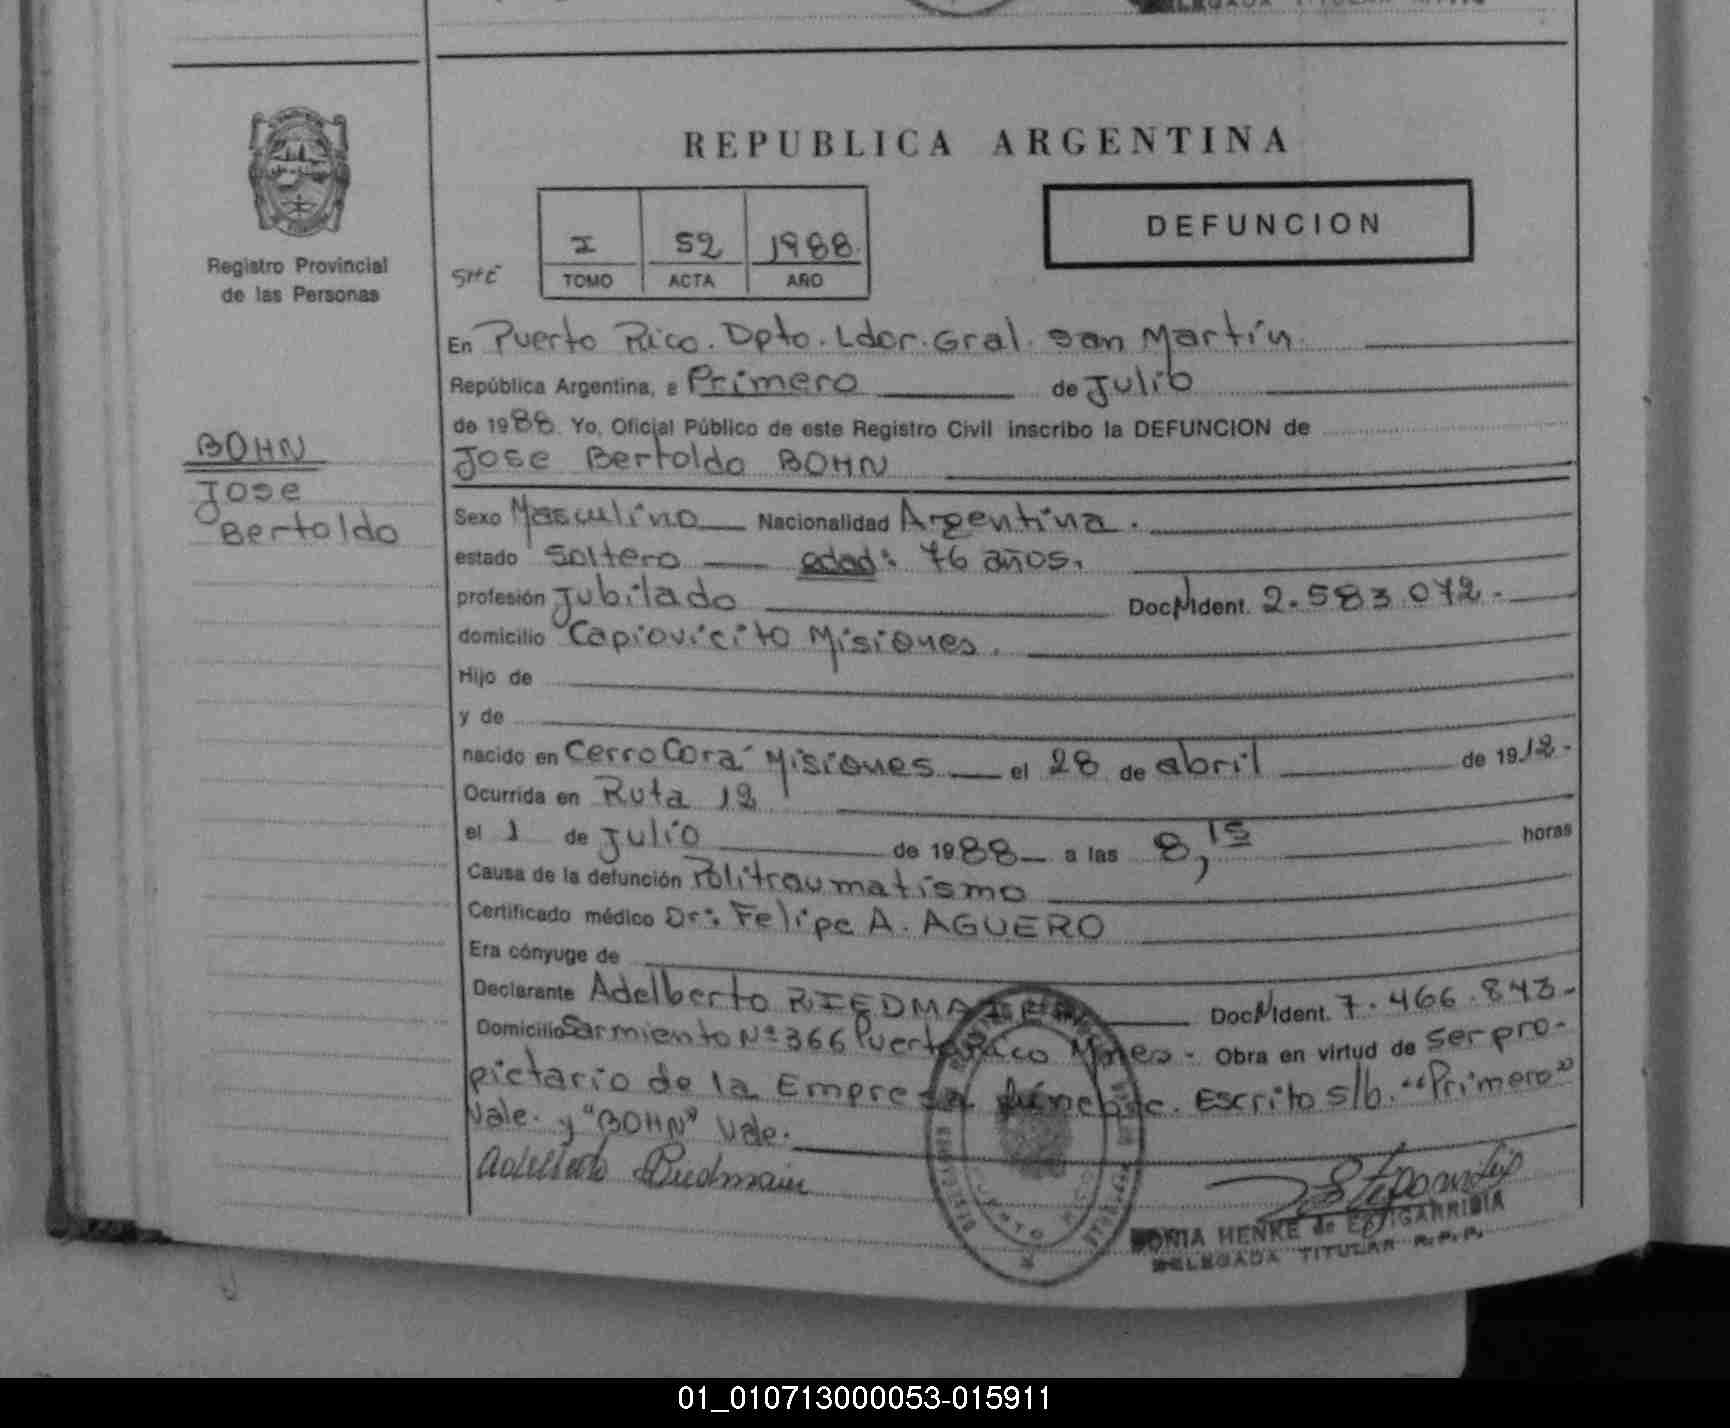 REPUBLICA ARGENTINA
DEFUNCION
I 52 1988
TOMO ACTA AÑO
Registro Provincial
de las Personas
BOHN
Jose
Bertoldo
En Puerto Rico. Dpto. Ldor. Gral. San Martín.
República Argentina, a Primero de Julio
de 1988. Yo, Oficial Público de este Registro Civil inscribo la DEFUNCION de
Jose Bertoldo BOHN
Sexo Masculino Nacionalidad Argentina.
estado Soltero edad: 76 años.
profesión Jubilado Doc. Ident. 2.583.072.
domicilio Capiovicito Misiones.
Hijo de
y de
nacido en Cerro Corá Misiones el 28 de abril de 1912.
Ocurrida en Ruta 12
el 1 de Julio de 1988 a las 8,15 horas
Causa de la defunción Politraumatismo
Certificado médico Dr: Felipe A. AGUERO
Era cónyuge de
Declarante Adelberto RIEDMAIER Doc. Ident. 7.466.843.
Domicilio Sarmiento Nº 366 Puerto Rico Mnes. Obra en virtud de ser pro-
pietario de la Empresa fúnebre. Escrito s/b. "Primero"
Vale. y "BOHN" Vale.
Adelberto Riedmaier
SONIA HENKE de ESTIGARRIBIA
DELEGADA TITULAR R.P.P.
01_010713000053-015911